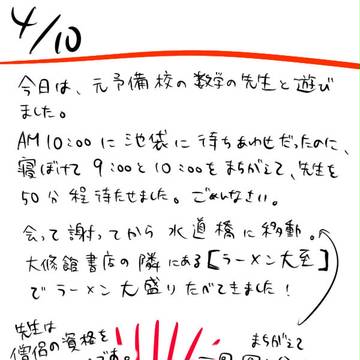 4/10
今日は、元予備校の数学の先生と遊び
ました。
AM10:00に池袋に待ちあわせだったのに、
寝ぼけて9:00と10:00をまちがえて、先生を
50分程待たせました。ごめんなさい。
会って謝ってから水道橋に移動。
大修館書店の隣にある[ラーメン大至]
でラーメン大盛りたべてきました!
先生は
僧侶の資格を
まちがえて